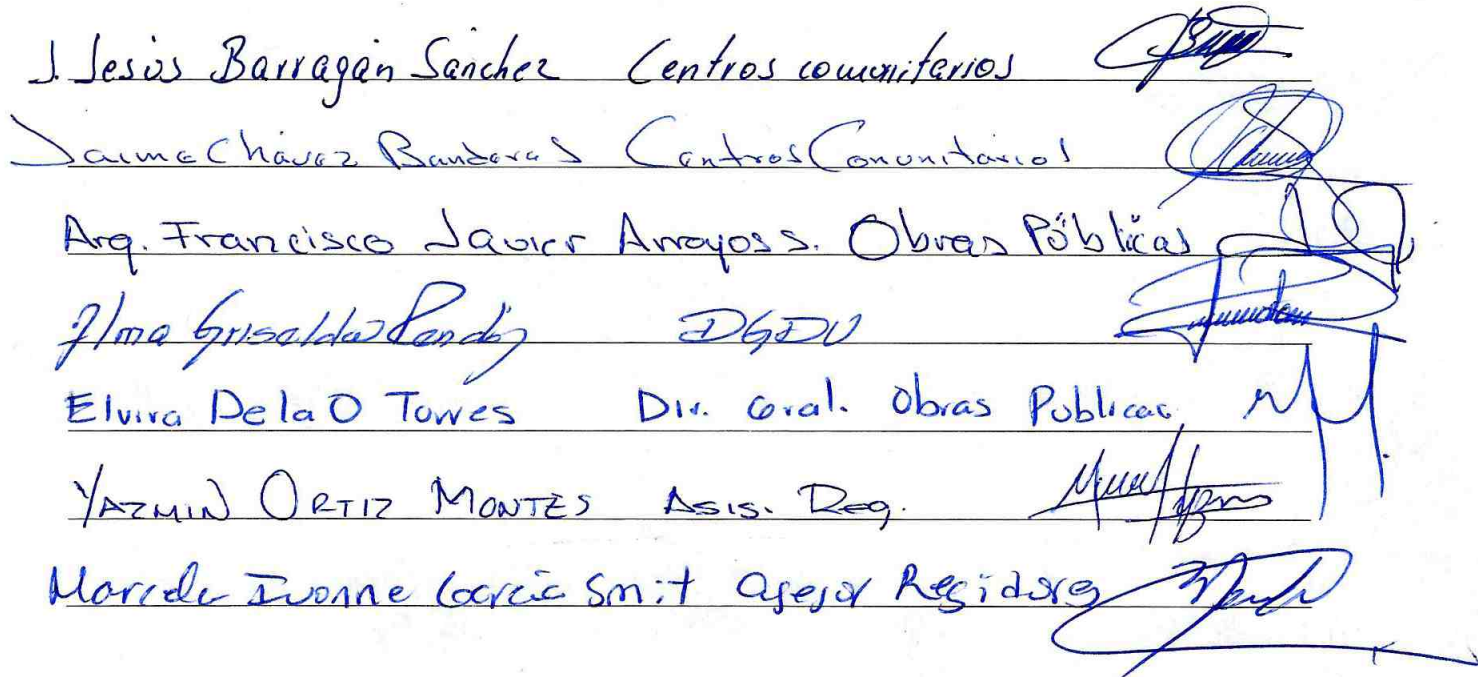 J. Jesús Barragán Sánchez Centros comunitarios
Jaime Chávez Banderas Centros Comunitarios
Arq. Francisco Javier Arroyos S. Obras Públicas
Alma Griselda Rendón DGDU
Elvira De la O Torres Dir. Gral. Obras Publicas
YAZMIN ORTIZ MONTES ASIS. Reg.
Marcela Ivonne García Smit asesor Regidora